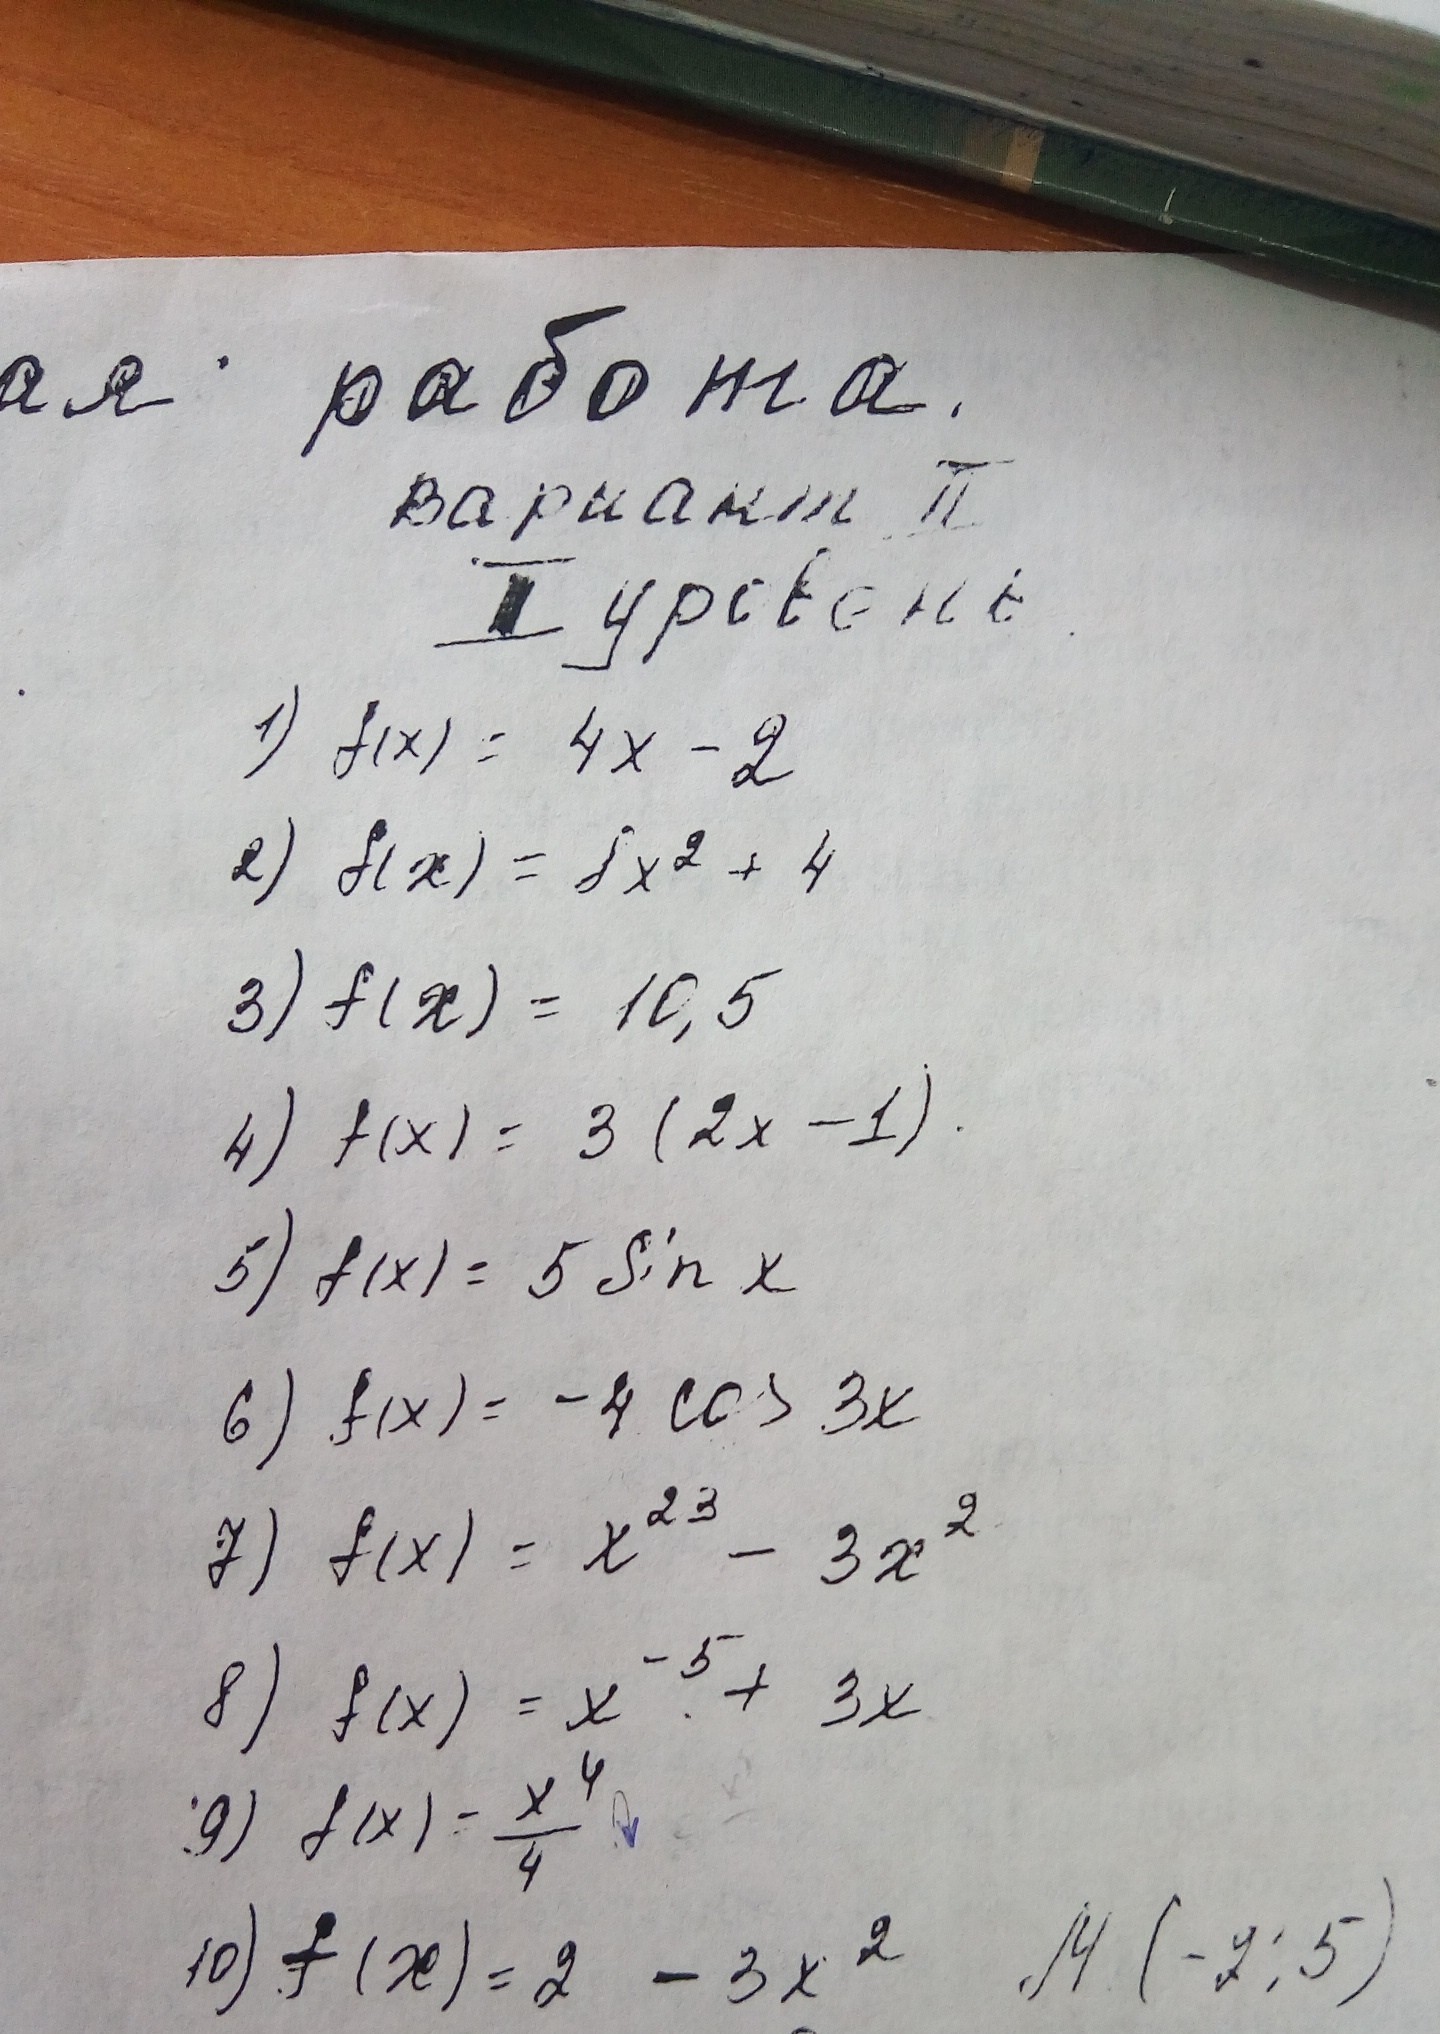 ая работа.
вариант II
I уровень
1) f(x) = 4x - 2
2) f(x) = 8x² + 4
3) f(x) = 10,5
4) f(x) = 3 (2x - 1).
5) f(x) = 5 Sin x
6) f(x) = -4 cos 3x
7) f(x) = x²³ - 3x²
8) f(x) = x⁻⁵ + 3x
9) f(x) = x⁴/4
10) f(x) = 2 - 3x² M (-2; 5)